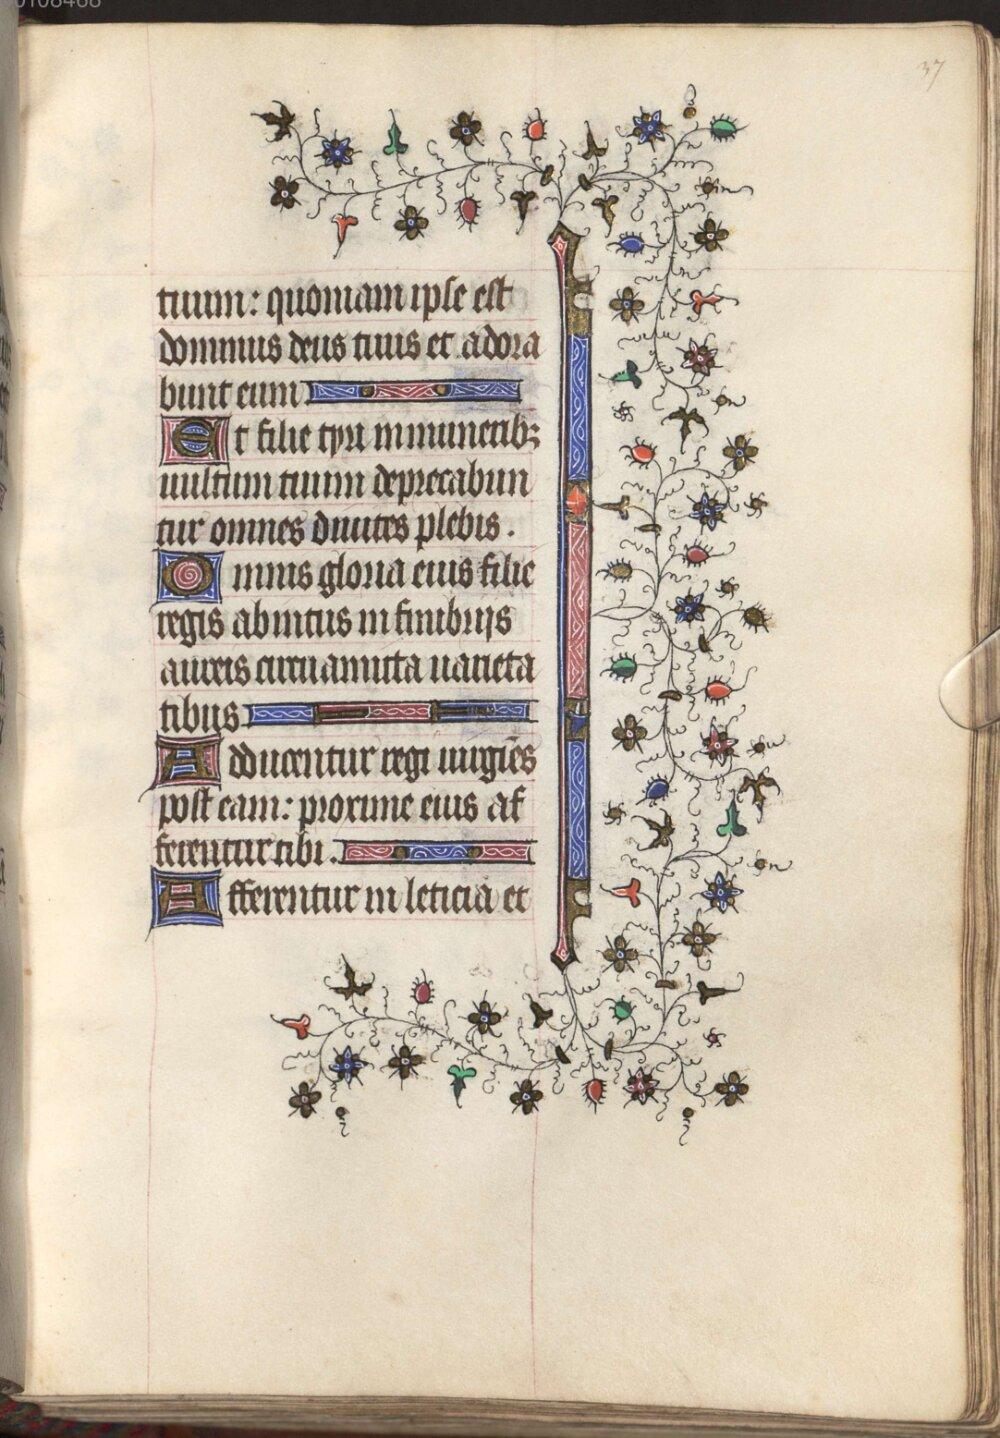 0108468
37
tuum: quoniam ipse est
dominus deus tuus et adora
bunt eum
Et filie tyri in munerib;
uultum tuum deprecabun
tur omnes diuites plebis.
Omnis gloria eius filie
regis abintus in fimbrijs
aureis circuamicta uarieta
tibus
Adducentur regi uirgīes
post eam: proxime eius af
ferentur tibi.
Afferentur in leticia et